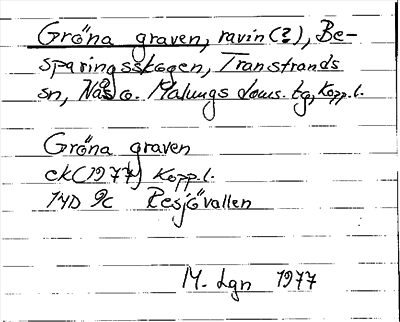 Gröna graven, ravin(?), Be-
sparingsskogen, Transtrands
sn, Nås o. Malungs doms. tg, Kopp.l.
Gröna graven
ek(1977) Kopp.l.
14D 9c Resjövallen
M. Lgn 1977